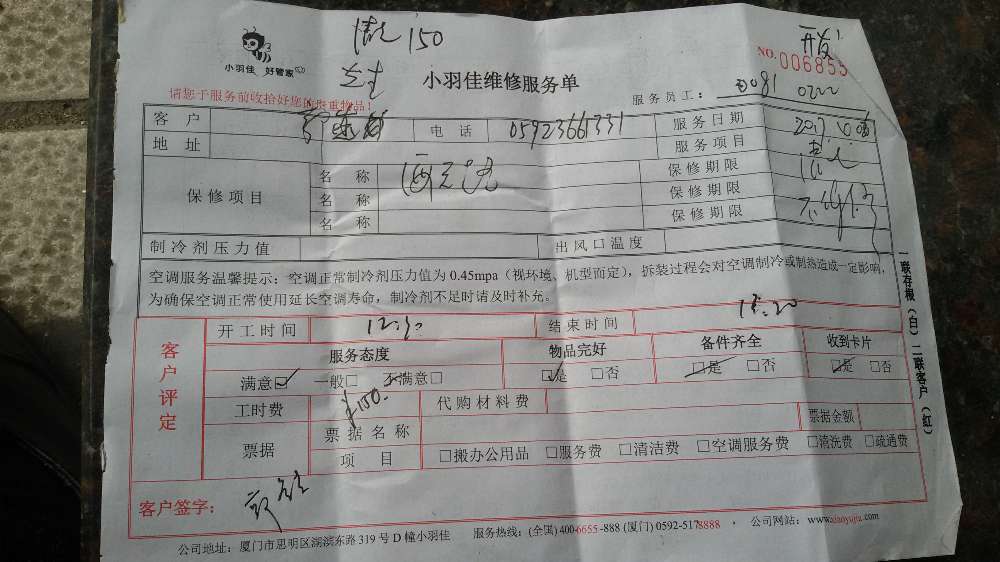 150
小羽佳 好管家
小羽佳维修服务单
NO. 006855
请您于服务前收拾好您的贵重物品！
服务员工： 0081 0222
客户 电话 05923661331 服务日期
地址 服务项目
保修项目 名称 保修期限
名称 保修期限
名称 保修期限
制冷剂压力值 出风口温度
空调服务温馨提示：空调正常制冷剂压力值为 0.45mpa（视环境、机型而定），拆装过程会对空调制冷或制热造成一定影响，
为确保空调正常使用延长空调寿命，制冷剂不足时请及时补充。
客户评定
开工时间 12:30 结束时间 15:20
服务态度 物品完好 备件齐全 收到卡片
满意☑ 一般□ 不满意□ ☑是 □否 ☑是 □否 ☑是 □否
工时费 ¥150. 代购材料费
票据 票据名称 票据金额
项目 □搬办公用品 □服务费 □清洁费 □空调服务费 □清洗费 □疏通费
客户签字：
公司地址：厦门市思明区湖滨东路 319 号 D 幢小羽佳 服务热线：(全国) 400-6655-888 (厦门) 0592-5178888 · 公司网站：www.xiaoyujia.com
一联存根（白）二联客户（红）